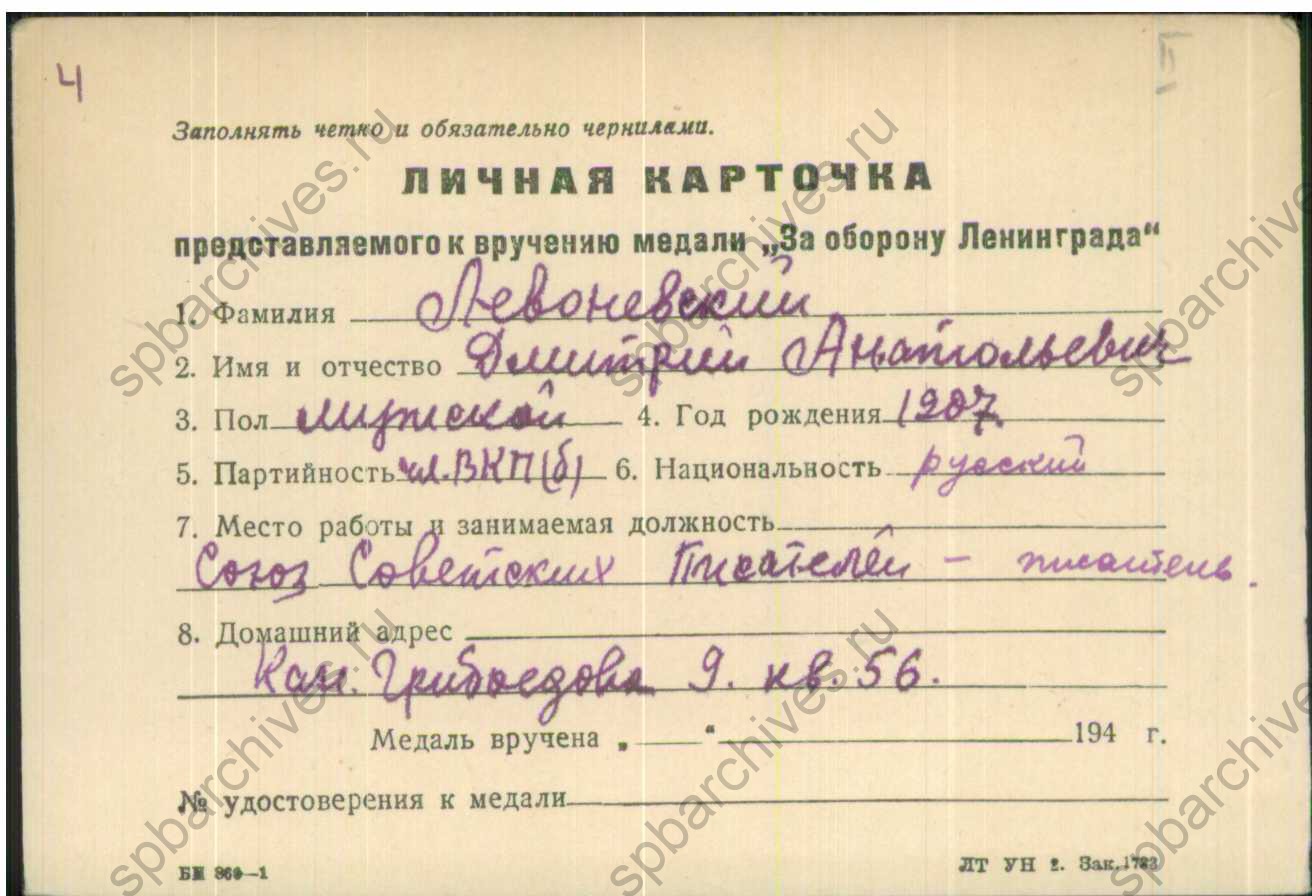 4
II
Заполнять четко и обязательно чернилами.
ЛИЧНАЯ КАРТОЧКА
представляемого к вручению медали „За оборону Ленинграда“
1. Фамилия Левоневский
2. Имя и отчество Дмитрий Анатольевич
3. Пол мужской 4. Год рождения 1907
5. Партийность чл. ВКП(б) 6. Национальность русский
7. Место работы и занимаемая должность
Союз Советских Писателей – писатель.
8. Домашний адрес
Кан. Грибоедова 9. кв. 56.
Медаль вручена „ “ 194 г.
№ удостоверения к медали
ЛТ УН 2. Зак.
spbarchives.ru